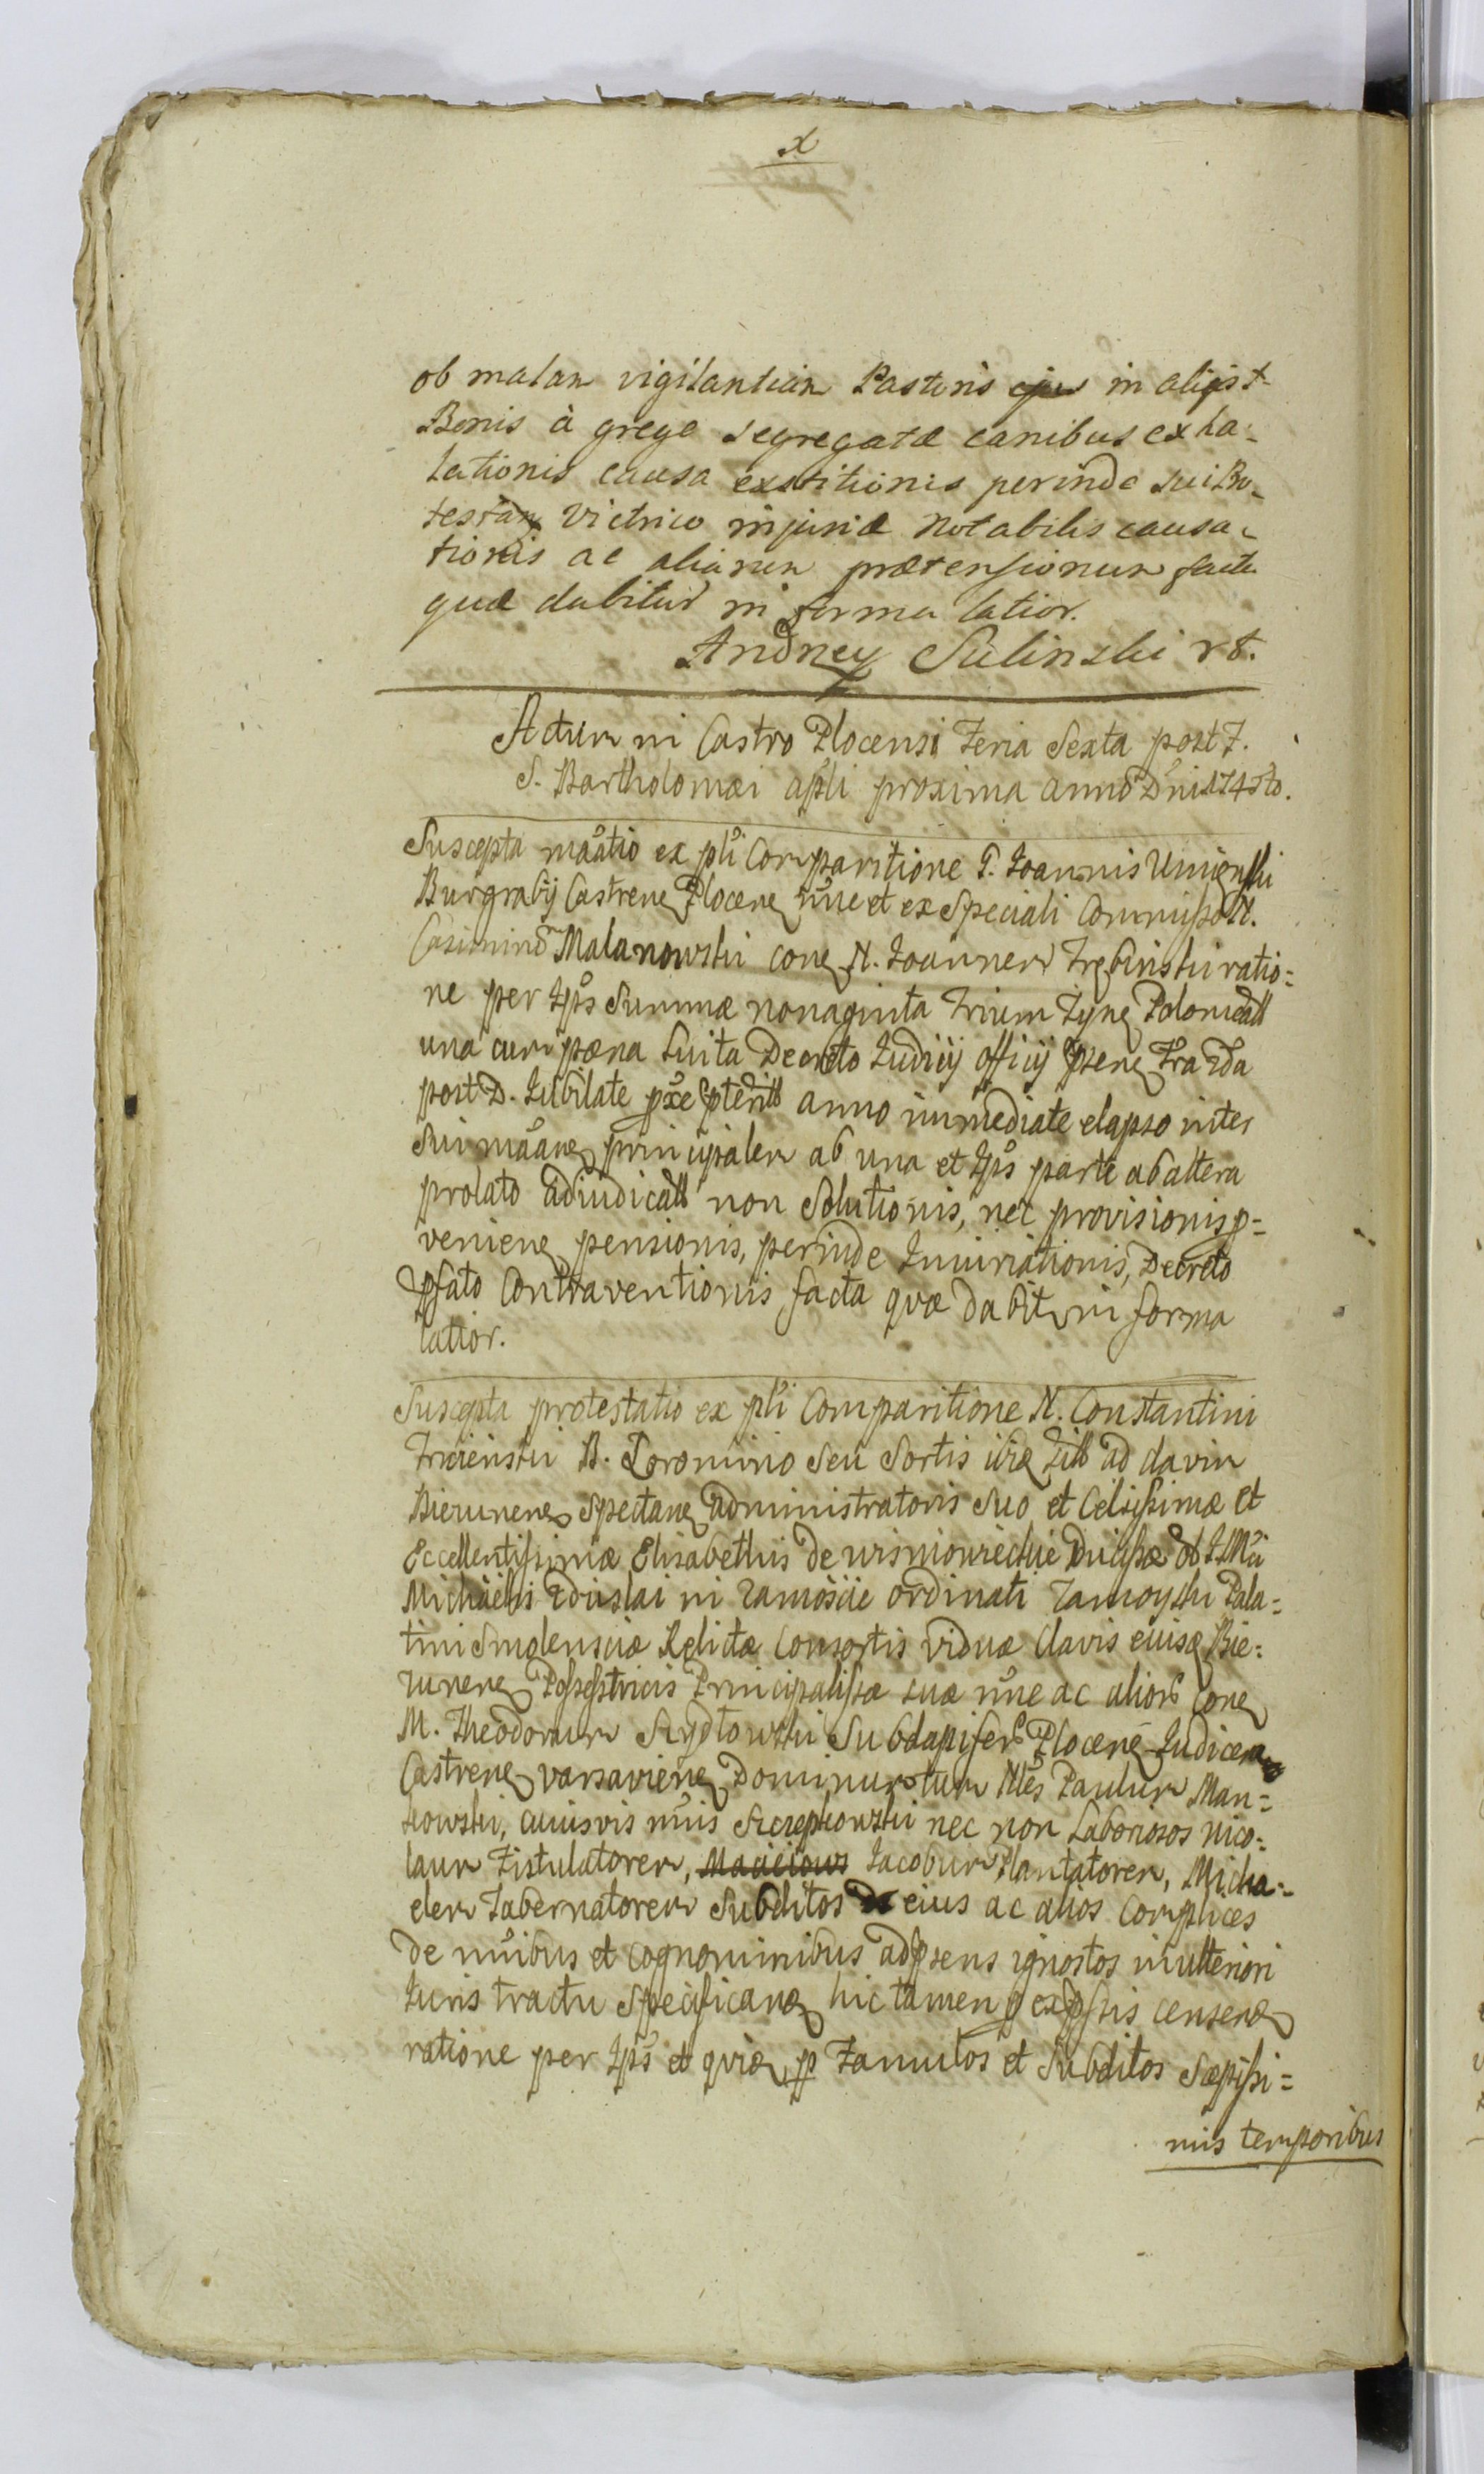 x
ob malam vigilantiam Pastoris in
Bonis à grege segregatæ canibus exha-
lationis causa exstitionis perinde sui Pro-
testan Victrico injuriæ notabilis causa-
tionis ac aliarum prætensionum facta
quæ dabitur in forma latior.
Andrzey Sulinski
Actum in Castro Plocensi Feria Sexta post F.
S. Bartholomæi apli proxima anno Dni
Suscepta maatio ex pli Comparitione G. Joannis
Burgrabij Castren Plocen nne et ex Speciali Commisso N.
Casimiro Malanowski con N. Joannem Trębinski ratio=
ne per Ips Summæ nonaginta trium Tyn Polonicall
una cum pæna luita Decreto Judicij officij psen Fra 2da
post D. Jubilate pxe ptentt anno immediate elapso inter
sui maan principalem ab una et Ips parte ab altera
prolato adiudicatt non Solutionis, nec provisionis p=
venien pensionis, perinde Iniuriationis, Decreto
psato Contraventionis facta quæ dabitur in forma
latior.
Suscepta protestatio ex pli Comparitione N. Constantini
B. Coromino seu Sortis ad clavim
Bierunen Spectan administratoris suo et Celsissimæ et
Eccellentissimæ Elisabethis de Wisniowieckie Ducissæ
Michaelis Zdzislai in Zamoscie ordinati Zamoyski Pala=
tini Smolensciæ Relictæ Consortis viduæ Clavis eiusq Bie=
runen Possestricis Principalissæ suæ nne ac alior con
M. Theodorum Szydlowski Subdapifer Plocen Judicem
Castren varsavien Dominum tum Nles Paulum Man=
kowski, cuiusvis nnis nec non Laboriosos Nico=
laum Fistulatorem, Jacobum Plantatorem, Micha=
elem Tabernatorem Subditos eius ac alios Complices
de nnibus et cognominibus adpsens ignostos in ulteriori
Juris tractu specifican hic tamen p expssis censen
ratione per Ips et quia pp Famulos et Subditos sæpissi=
mis temporibus